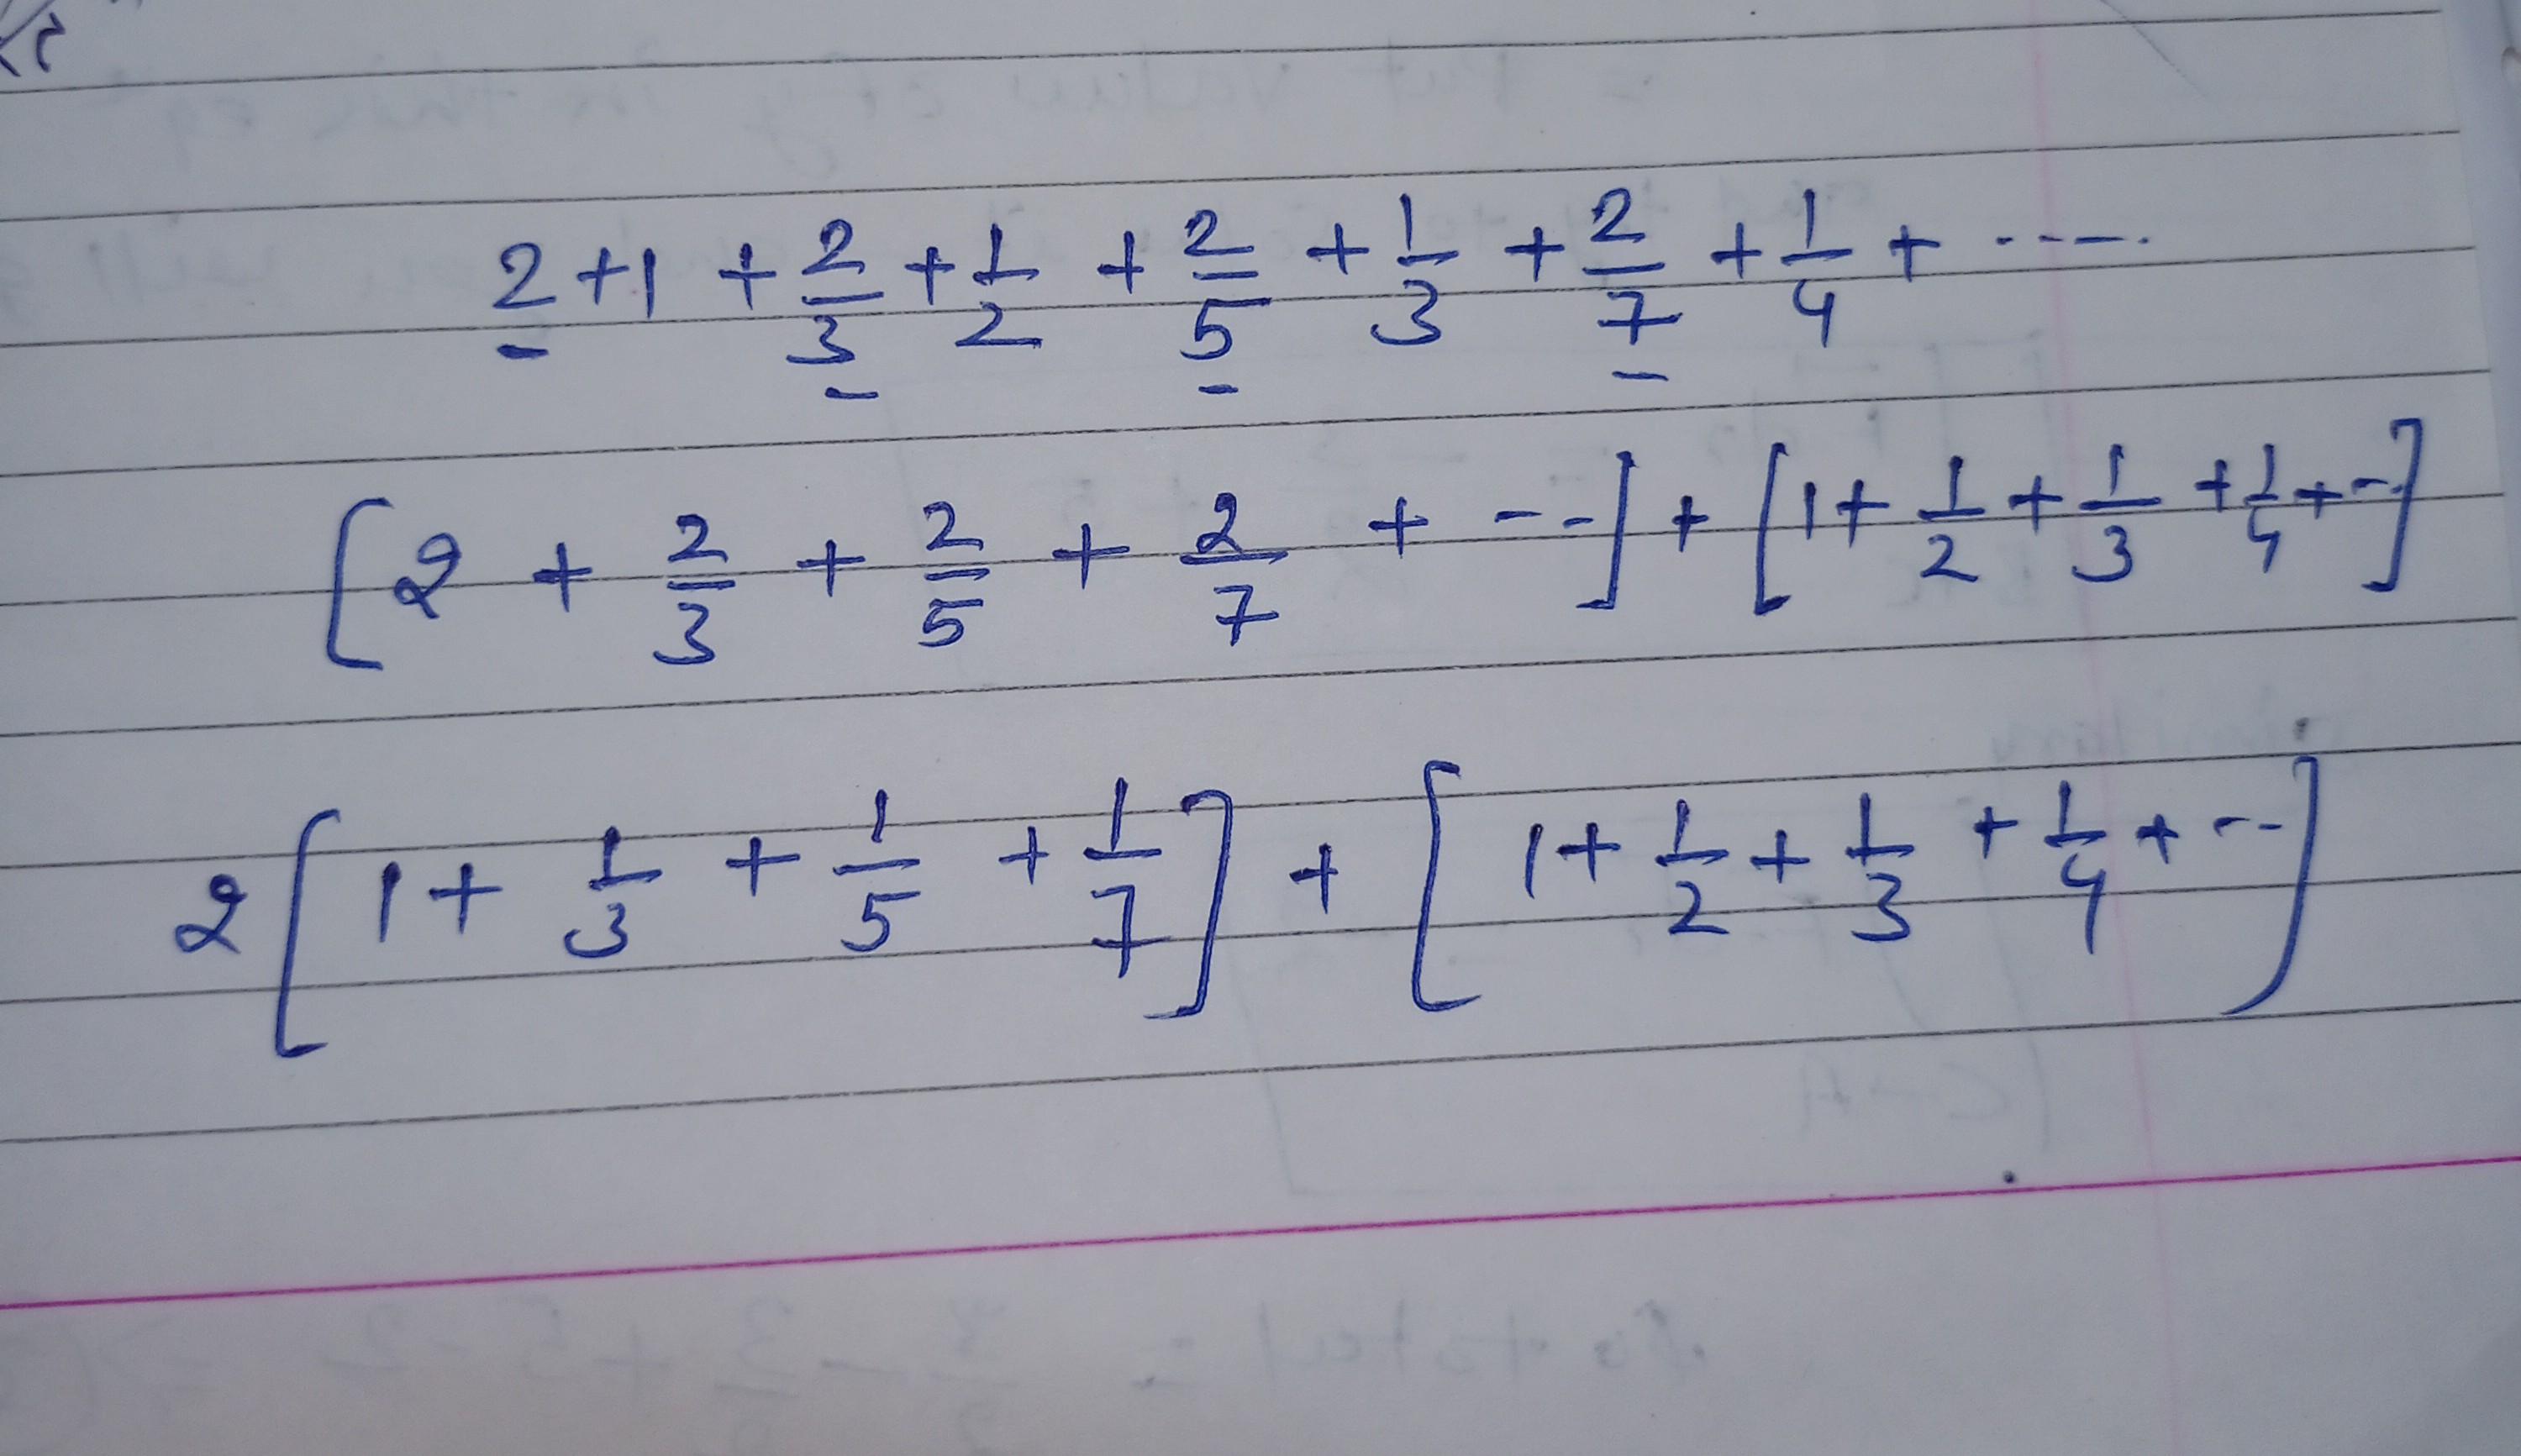 2 + 1 + 2/3 + 1/2 + 2/5 + 1/3 + 2/7 + 1/4 + .....
[2 + 2/3 + 2/5 + 2/7 + ---] + [1 + 1/2 + 1/3 + 1/4 + --]
2[1 + 1/3 + 1/5 + 1/7] + [1 + 1/2 + 1/3 + 1/4 + --]